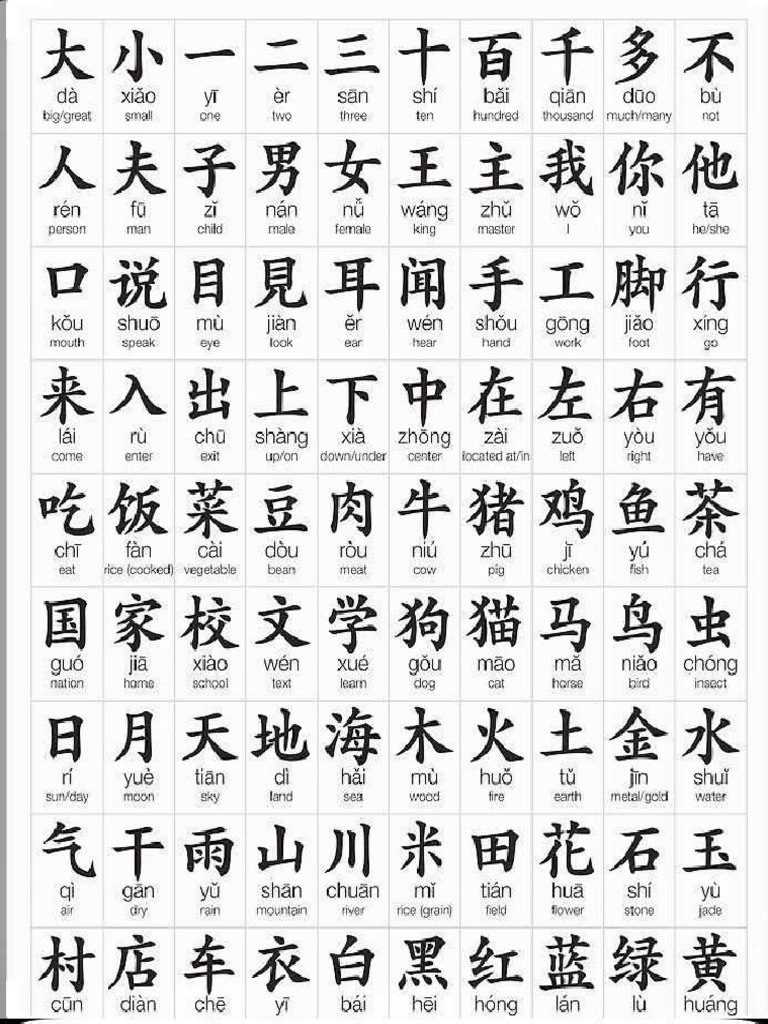 大 小 一 二 三 十 百 千 多 不
dà xiǎo yī èr sān shí bǎi qiān dūo bù
big/great small one two three ten hundred thousand much/many not
人 夫 子 男 女 王 主 我 你 他
rén fū zǐ nán nǚ wáng zhǔ wǒ nǐ tā
person man child male female king master I you he/she
口 说 目 見 耳 闻 手 工 脚 行
kǒu shuō mù jiàn ěr wén shǒu gōng jiǎo xíng
mouth speak eye look ear hear hand work foot go
来 入 出 上 下 中 在 左 右 有
lái rù chū shàng xià zhōng zài zuǒ yòu yǒu
come enter exit up/on down/under center located at/in left right have
吃 饭 菜 豆 肉 牛 猪 鸡 鱼 茶
chī fàn cài dòu ròu niú zhū jī yú chá
eat rice (cooked) vegetable bean meat cow pig chicken fish tea
国 家 校 文 学 狗 猫 马 鸟 虫
guó jiā xiào wén xué gǒu māo mǎ niǎo chóng
nation home school text learn dog cat horse bird insect
日 月 天 地 海 木 火 土 金 水
rí yuè tiān dì hǎi mù huǒ tǔ jīn shuǐ
sun/day moon sky land sea wood fire earth metal/gold water
气 干 雨 山 川 米 田 花 石 玉
qì gān yǔ shān chuān mǐ tián huā shí yù
air dry rain mountain river rice (grain) field flower stone jade
村 店 车 衣 白 黑 红 蓝 绿 黄
cūn diàn chē yī bái hēi hóng lán lǜ huáng